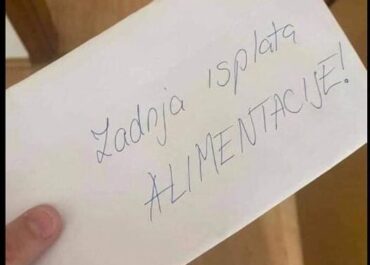 Zadnja isplata
ALIMENTACIJE!